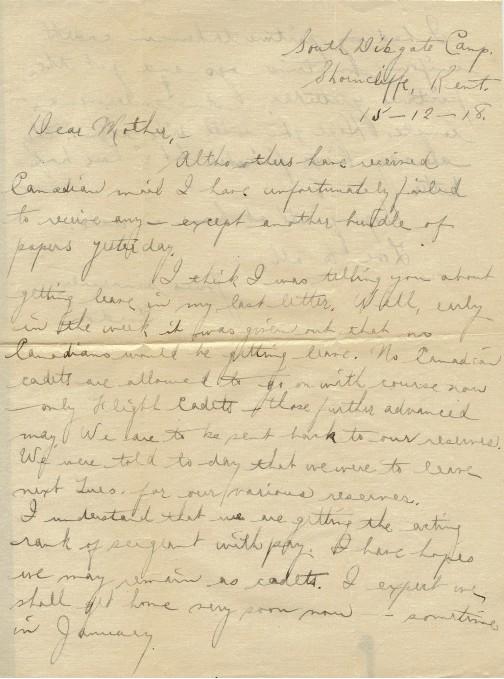 South Dibgate Camp.
Shorncliffe, Kent.
15-12-18.
Dear Mother,
Altho others have received
Canadian mail I have unfortunately failed
to receive any - except another bundle of
papers yesterday.
I think I was telling you about
getting leave in my last letter. Well, early
in the week it was given out that no
Canadians would be getting leave. No Canadian
cadets are allowed to go on with course now
- only Flight Cadets & those further advanced
may. We are to be sent back to our reserves.
We were told to day that we were to leave
next Tues. for our various reserves.
I understand that we are getting the acting
rank of sergeant with pay. I have hopes
we may remain as cadets. I expect we
shall get home very soon now - sometime
in January.